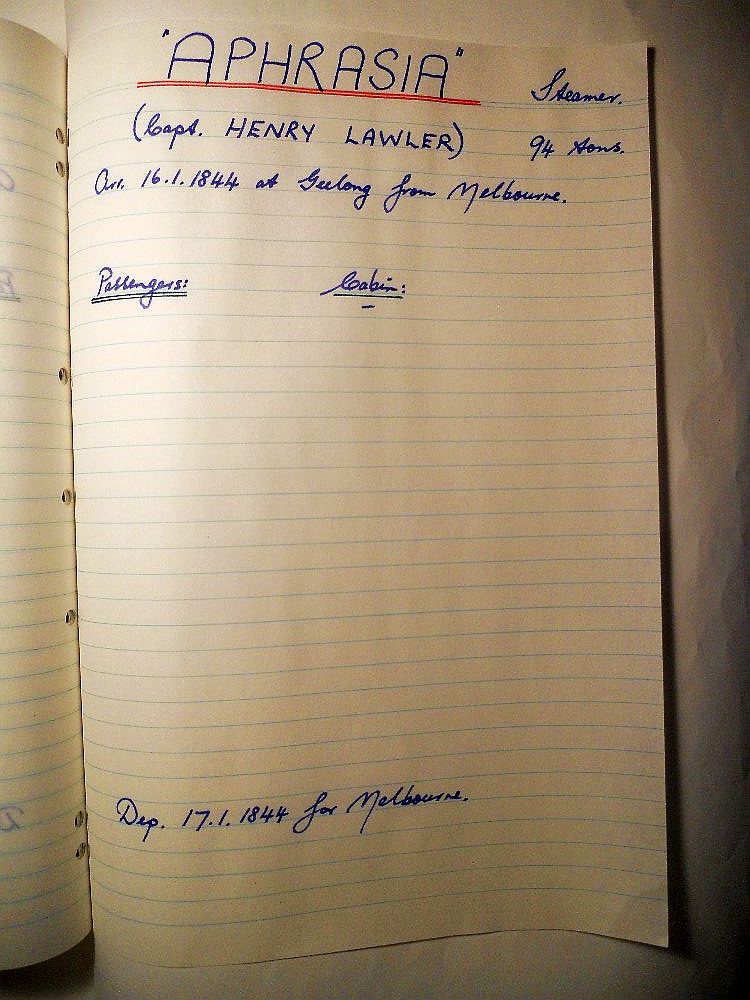 "APHRASIA" Steamer.
(Capt. HENRY LAWLER) 94 tons.
Arr. 16.1.1844 at Geelong from Melbourne.
Passengers: Cabin:
–
Dep. 17.1.1844 for Melbourne.